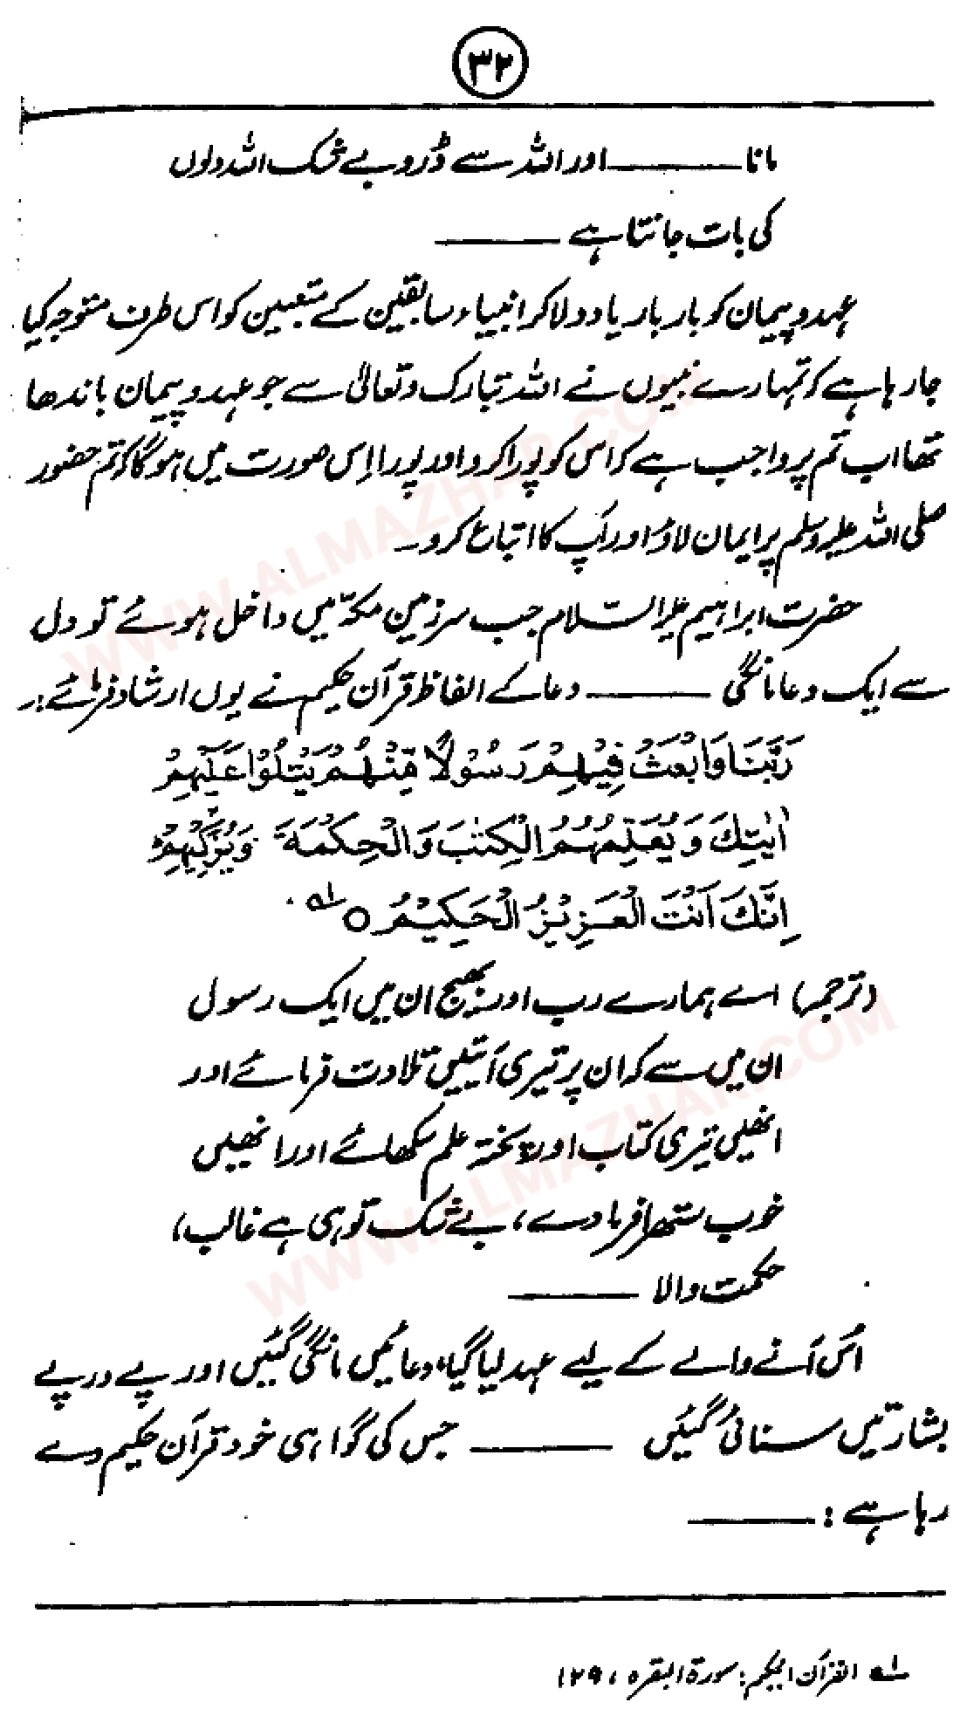 ۳۲
مانا ــــــــ اور اللہ سے ڈرو بے شک اللہ دلوں
کی بات جانتا ہے ــــــــ
عہد و پیمان کو بار بار یاد دلا کر انبیاء سابقین کے متبعین کو اس طرف متوجہ کیا
جا رہا ہے کہ تمہارے نبیوں نے اللہ تبارک و تعالیٰ سے جو عہد و پیمان باندھا
تھا اب تم پر واجب ہے کہ اس کو پورا کرو اور پورا اِس صورت میں ہو گا کہ تم حضور
صلی اللہ علیہ وسلم پر ایمان لاؤ اور آپ کا اتباع کرو۔
حضرت ابراہیم علیہ السلام جب سرزمین مکہّ میں داخل ہوئے تو دل
سے ایک دعا مانگی ــــــــ دعا کے الفاظ قرآن حکیم نے یوں ارشاد فرمائے:۔
رَبَّنَا وَابْعَثْ فِيْهِمْ رَسُوْلًا مِّنْهُمْ يَتْلُوْا عَلَيْهِمْ
اٰيٰتِكَ وَيُعَلِّمُهُمُ الْكِتٰبَ وَالْحِكْمَةَ وَيُزَكِّيْهِمْ
اِنَّكَ اَنْتَ الْعَزِيْزُ الْحَكِيْمُ ○ ۵۱
(ترجمہ) اے ہمارے رب اور بھیج ان میں ایک رسول
ان میں سے کہ ان پر تیری آیتیں تلاوت فرمائے اور
انھیں تیری کتاب اور پختہ علم سکھائے اور انھیں
خوب ستھرا فرما دے، بے شک تو ہی ہے غالب،
حکمت والا ــــــــ
اُس آنے والے کے لیے عہد لیا گیا، دعائیں مانگی گئیں اور پے در پے
بشارتیں سنائی گئیں ــــــــ جس کی گواہی خود قرآن حکیم دے
رہا ہے: ــــــــ
۵۱ القرآن الحکیم: سورۃ البقرہ، ۱۲۹
WWW.ALMAZHAR.COM
WWW.ALMAZHAR.COM